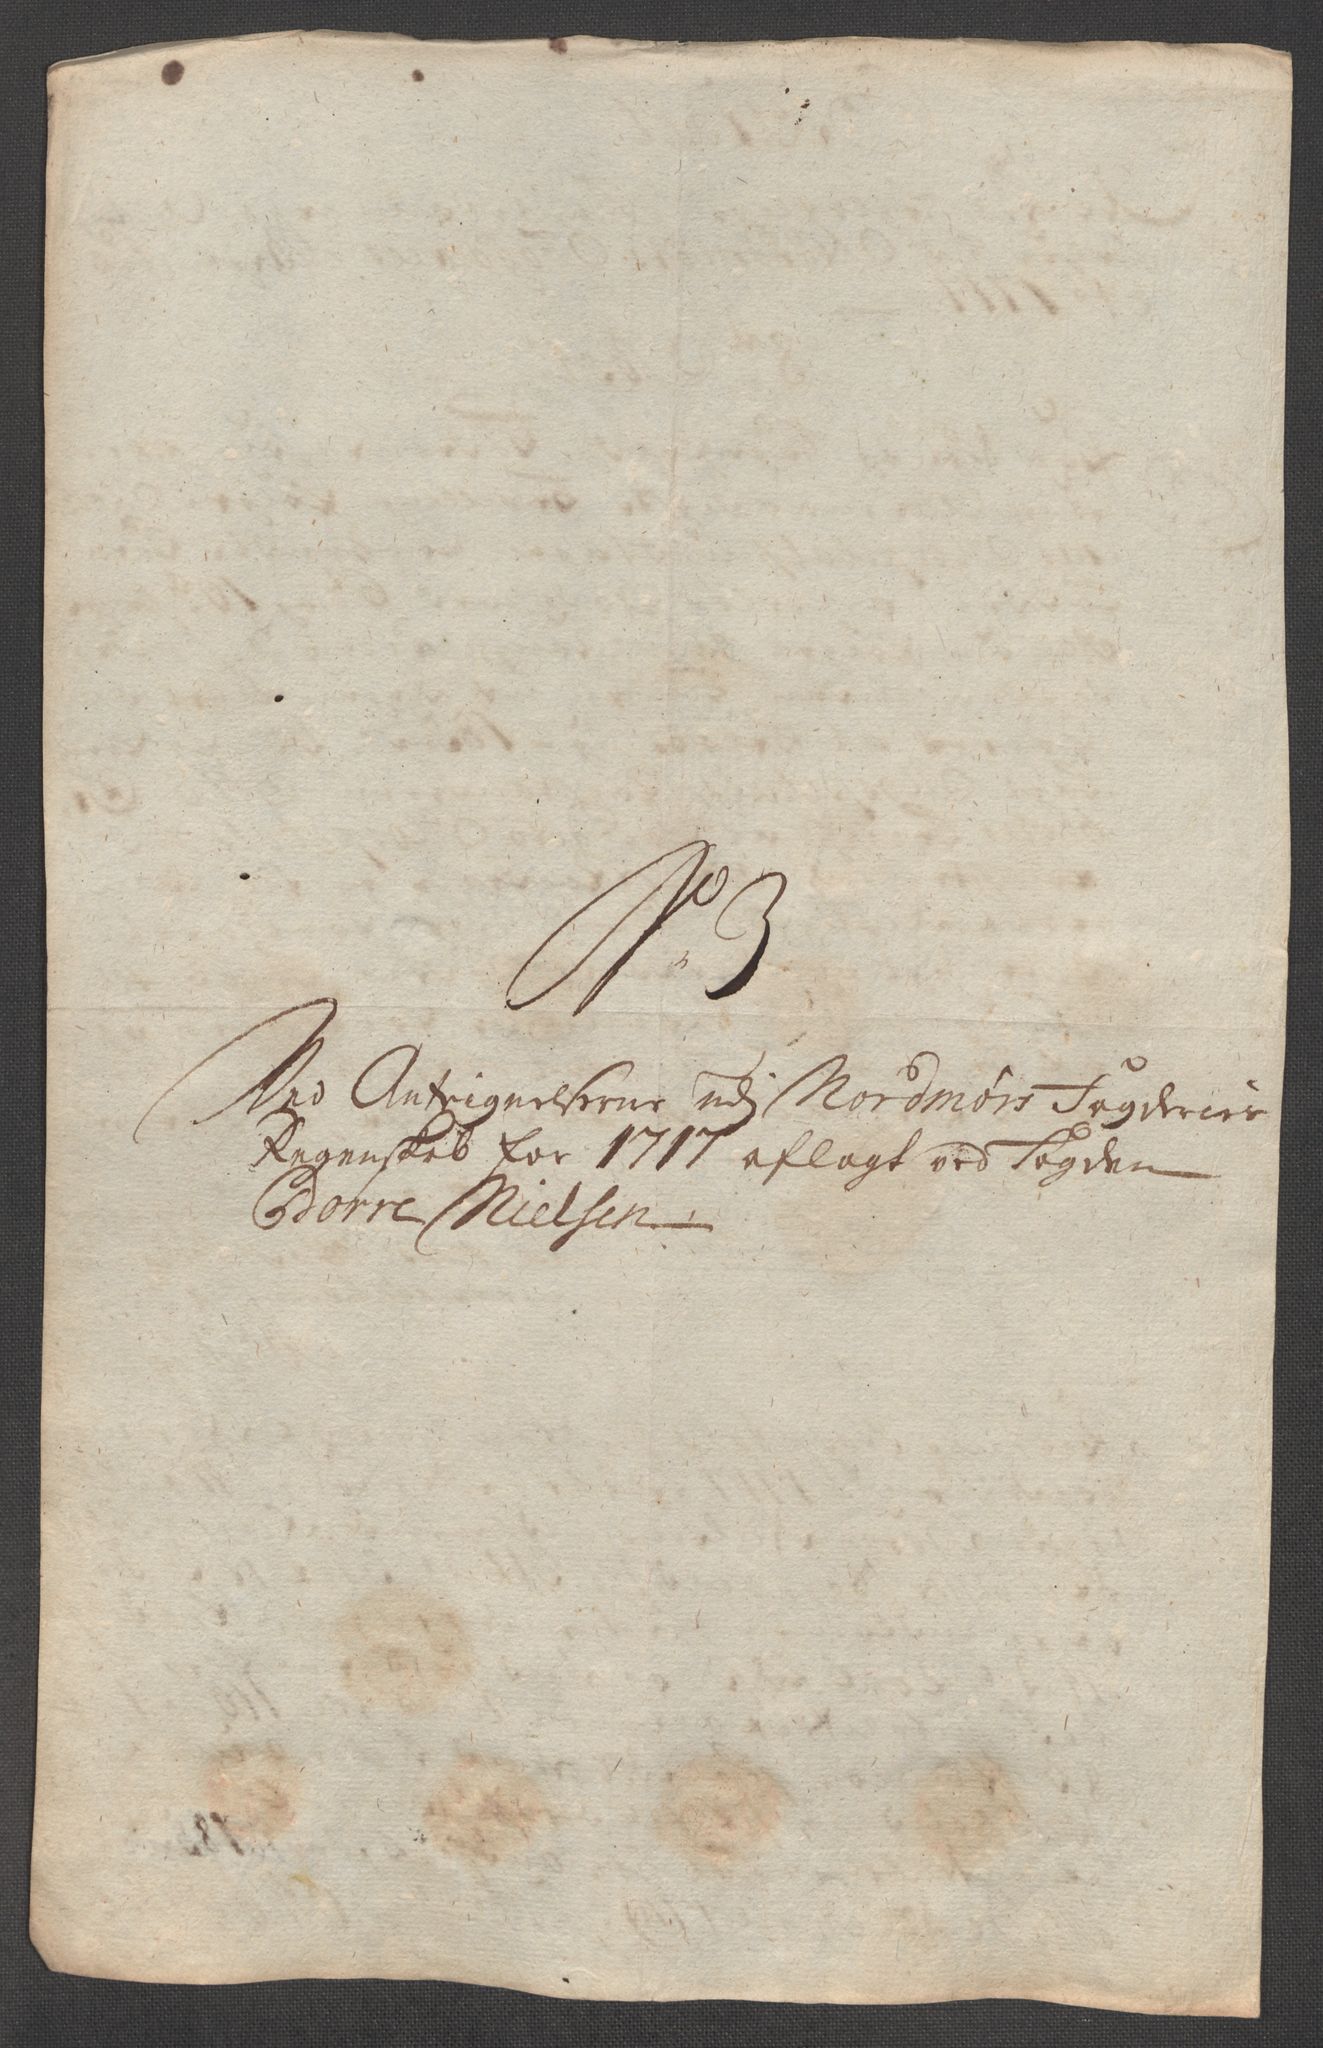 No. 3
Ved Anteignelserne udj Nordmörs Fogderies
Regenskab for 1717 aflagt ved Fogden
Dorre Nielsen